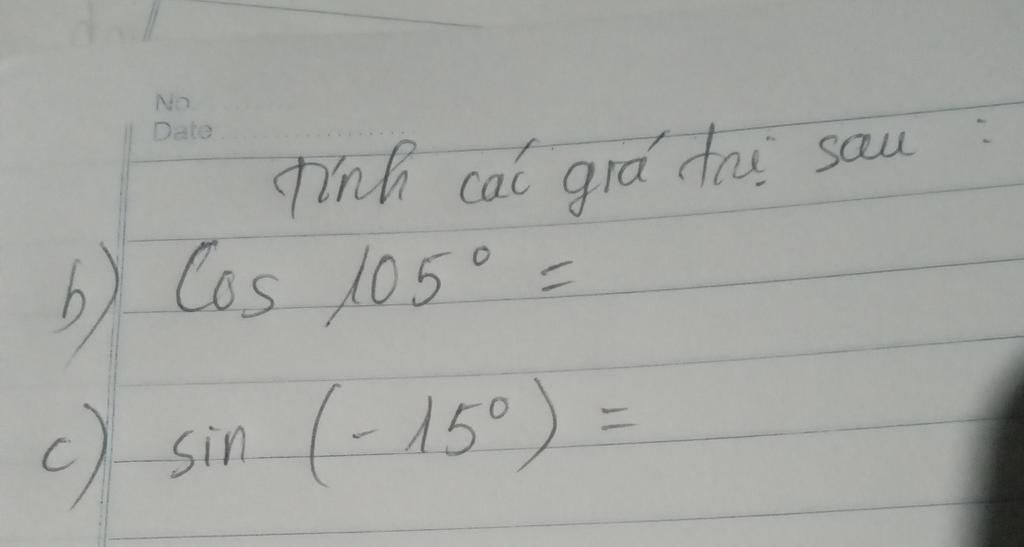 No.
Date
Tính các giá trị sau :
b) Cos 105° =
c) sin (-15°) =